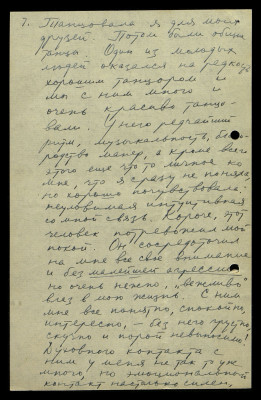 7. Танцевала я для моих
друзей. Потом были общие
танцы. Один из молодых
людей оказался на редкость
хорошим танцором и
мы с ним много и
очень красиво танцо-
вали. У него редчайший
ритм, музыкальность, бла-
городство манер, а кроме всего
этого еще что-то личное ко
мне, что я сразу не поняла,
но хорошо почувствовала:
неуловимая интуитивная
со мной связь. Короче, этот
человек потревожил мой
покой. Он сосредоточил
на мне все свое внимание
и без малейшей агрессии,
но очень нежно, „вежливо"
влез в мою жизнь. С ним
мне все понятно, спокойно,
интересно, – без него грустно,
скучно и порой невыносимо!
Духовного контакта с
ним у меня не так-то уж
много, но эмоциональный
контакт настолько силен,